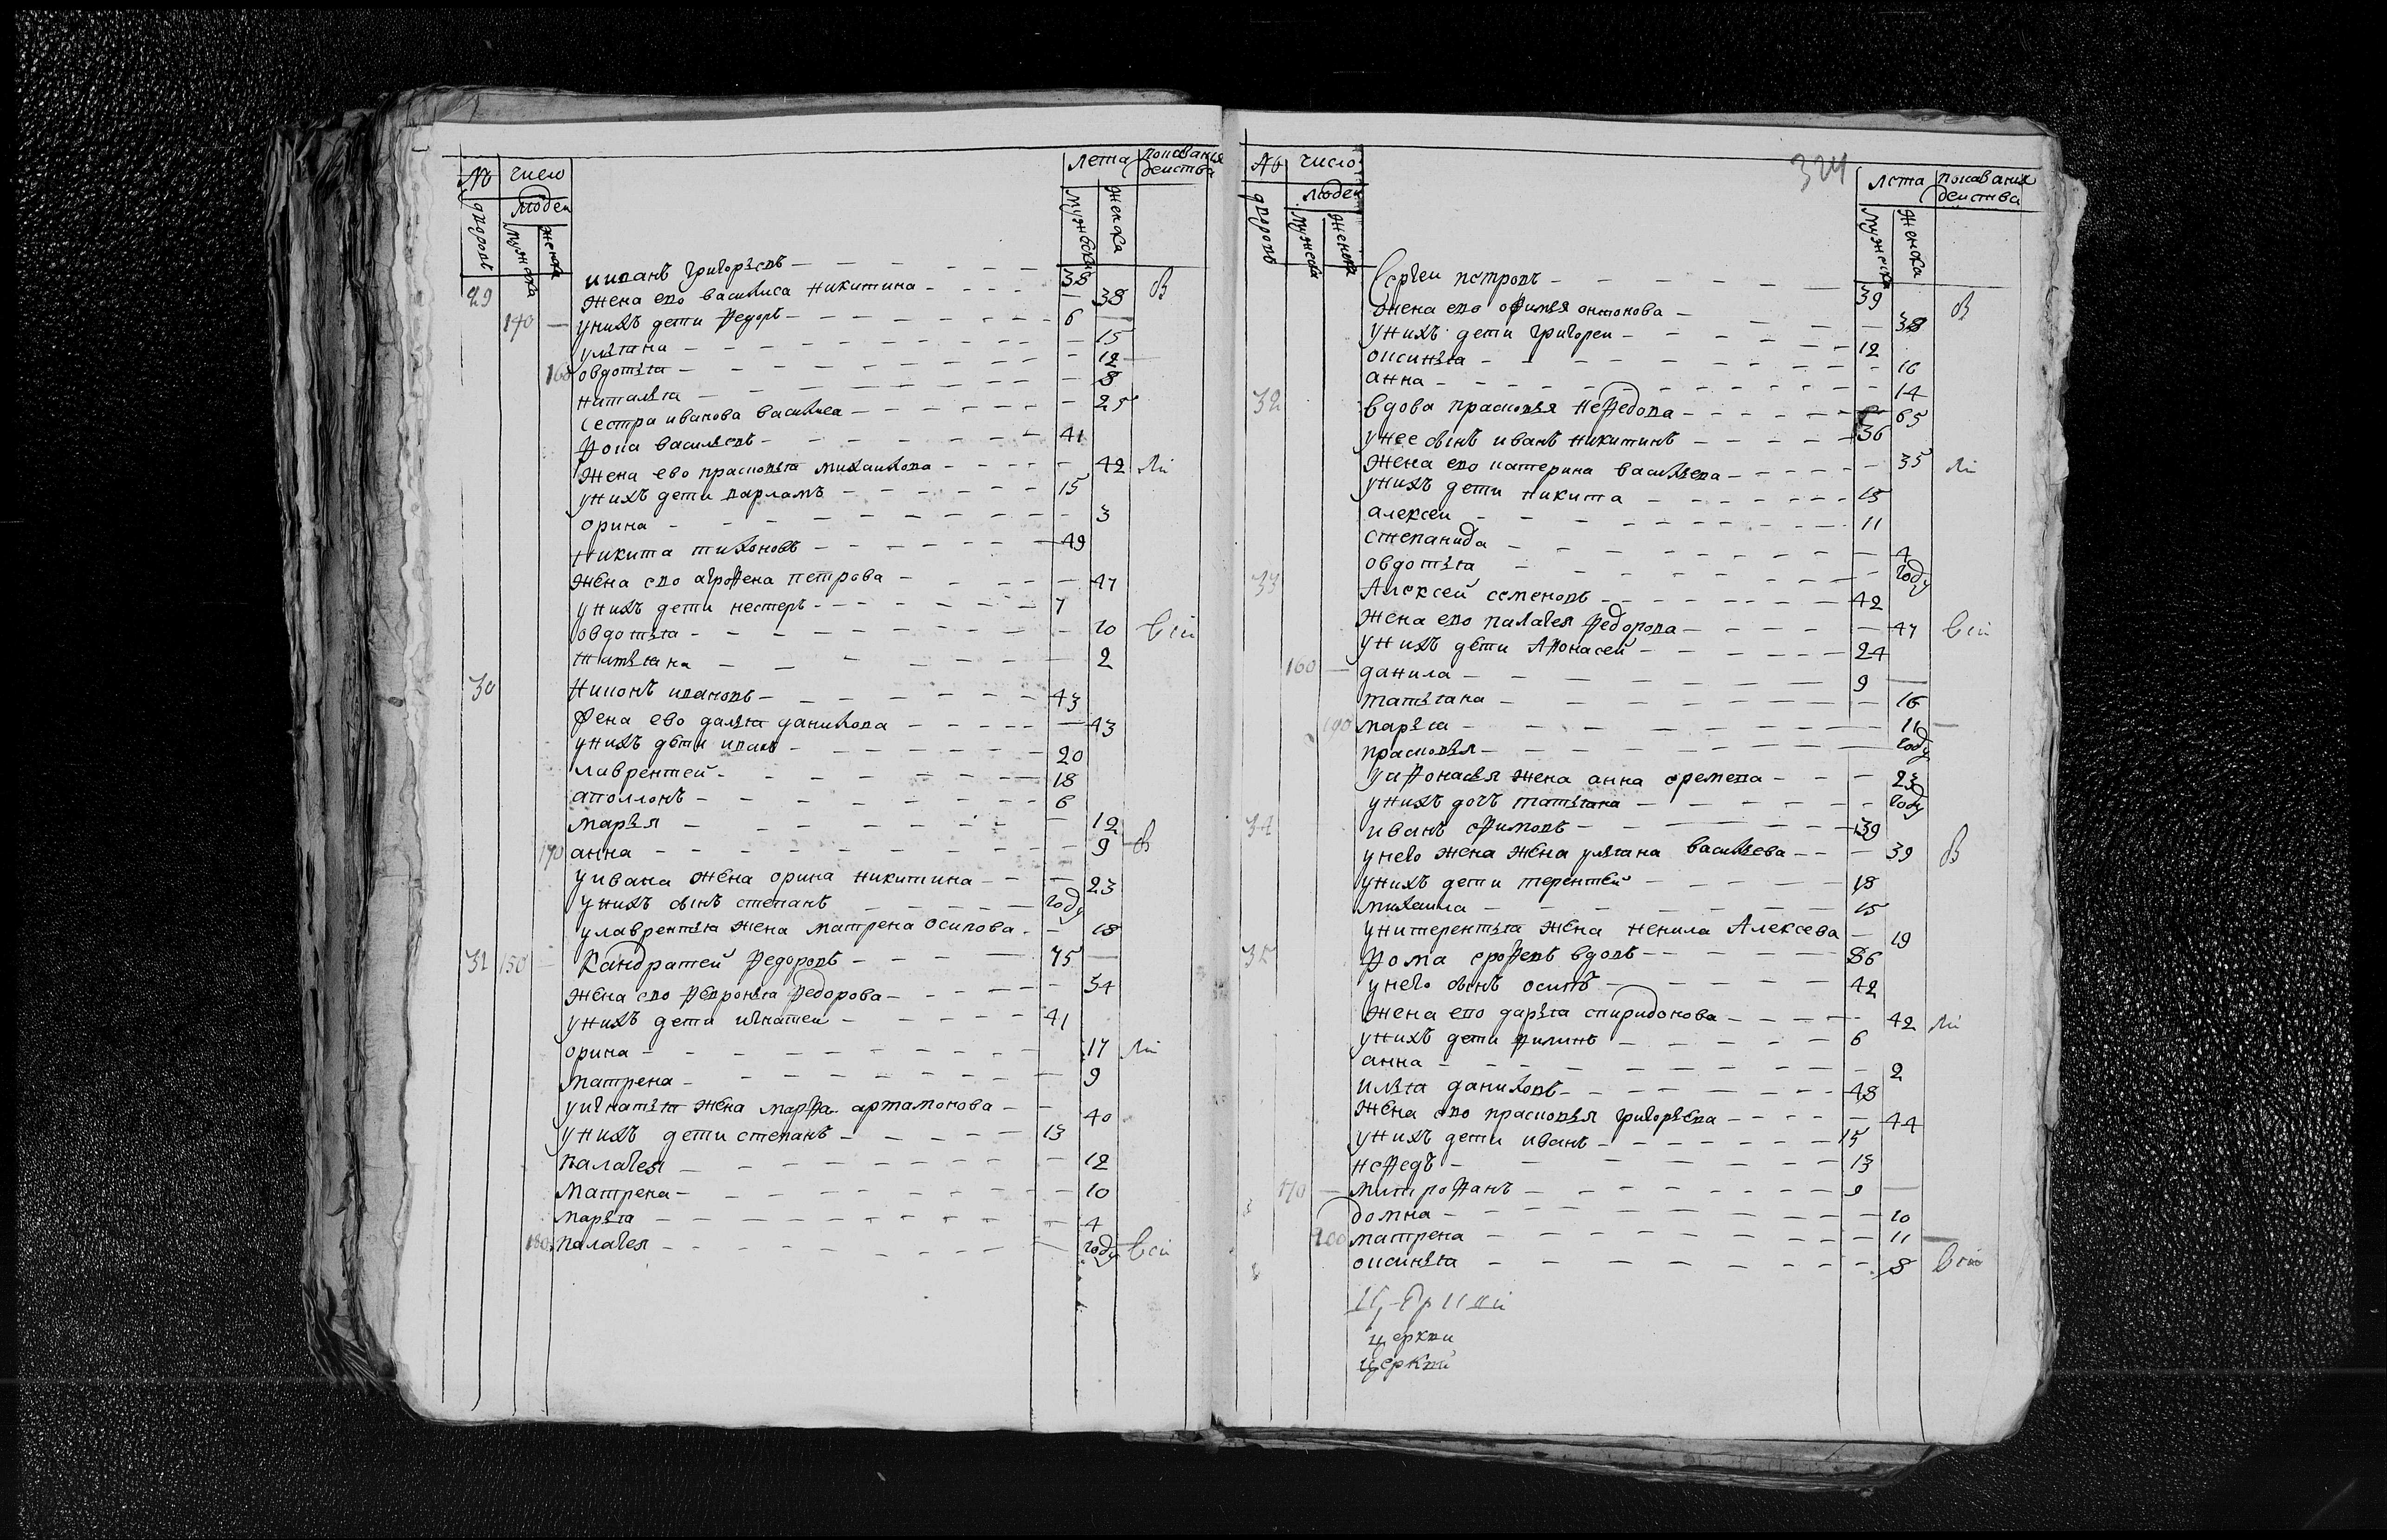 № число лета показанія
людеи деиства
дворовъ мужеска женска мужеска женска
ииванъ григорьевъ 38
29 жена ево василиса никитина 38 в
140 унихъ дети федоръ 6
ульяна 15
160 овдотья 12
наталья 8
сестра иванова василиса 25
фока васильевъ 41
жена ево прасковья михаилова 42 ли
унихъ дети варламъ 15
орина 3
никита тихоновъ 49
жена ево агрофена петрова 47
унихъ дети нестеръ 7
овдотья 10 вси
татьяна 2
30 никонъ ивановъ 43
жена ево дарья данилова 43
унихъ дети иванъ 20
лаврентей 18
аполлонъ 6
марья 12
170 анна 9 в
уивана жена орина никитина 23
унихъ сынъ степанъ году
улаврентья жена матрена осипова 18
31 150 Кандратей федоровъ 75
жена ево февронья федорова 54
унихъ дети игнатеи 41
орина 17 ли
матрена 9
уигнатья жена марфа артамонова 40
унихъ дети степанъ 13
палагея 12
матрена 10
марья 4
180 палагея году вси
324
№ число лета показания
людеи деиства
дворовъ мужеска женска мужеска женска
Сергеи петровъ 39
жена ево офимья онтонова 38 в
унихъ дети григореи 12
оксинья 16
анна 14
32 вдова прасковья нефедова 65
унее сынъ иванъ никитинъ 36
жена ево катерина васильева 35 ли
унихъ дети никита 15
алексеи 11
степанида 4
овдотья году
33 Алексей семеновъ 42
жена ево палагея федорова 47 вси
унихъ дети Афонасей 24
160 данила 9
татьяна 16
190 марья 11
прасковья году
уафонасья жена анна еремева 23
унихъ дочъ татьяна году
34 иванъ ефимовъ 39
унего жена жена ульяна васильева 39 в
унихъ дети терентей 18
михаила 15
унитерентья жена ненила Алексева 19
35 фома ерофевъ вдовъ 86
унего сынъ осипъ 42
жена ево дарья спиридонова 42 ли
унихъ дети филипъ 6
анна 2
илья даниловъ 48
жена ево прасковья григорьева 44
унихъ дети иванъ 15
нефедъ 13
170 митрофанъ 9
домна 10
200 матрена 11
оксинья 8 вси
церкви
церкви